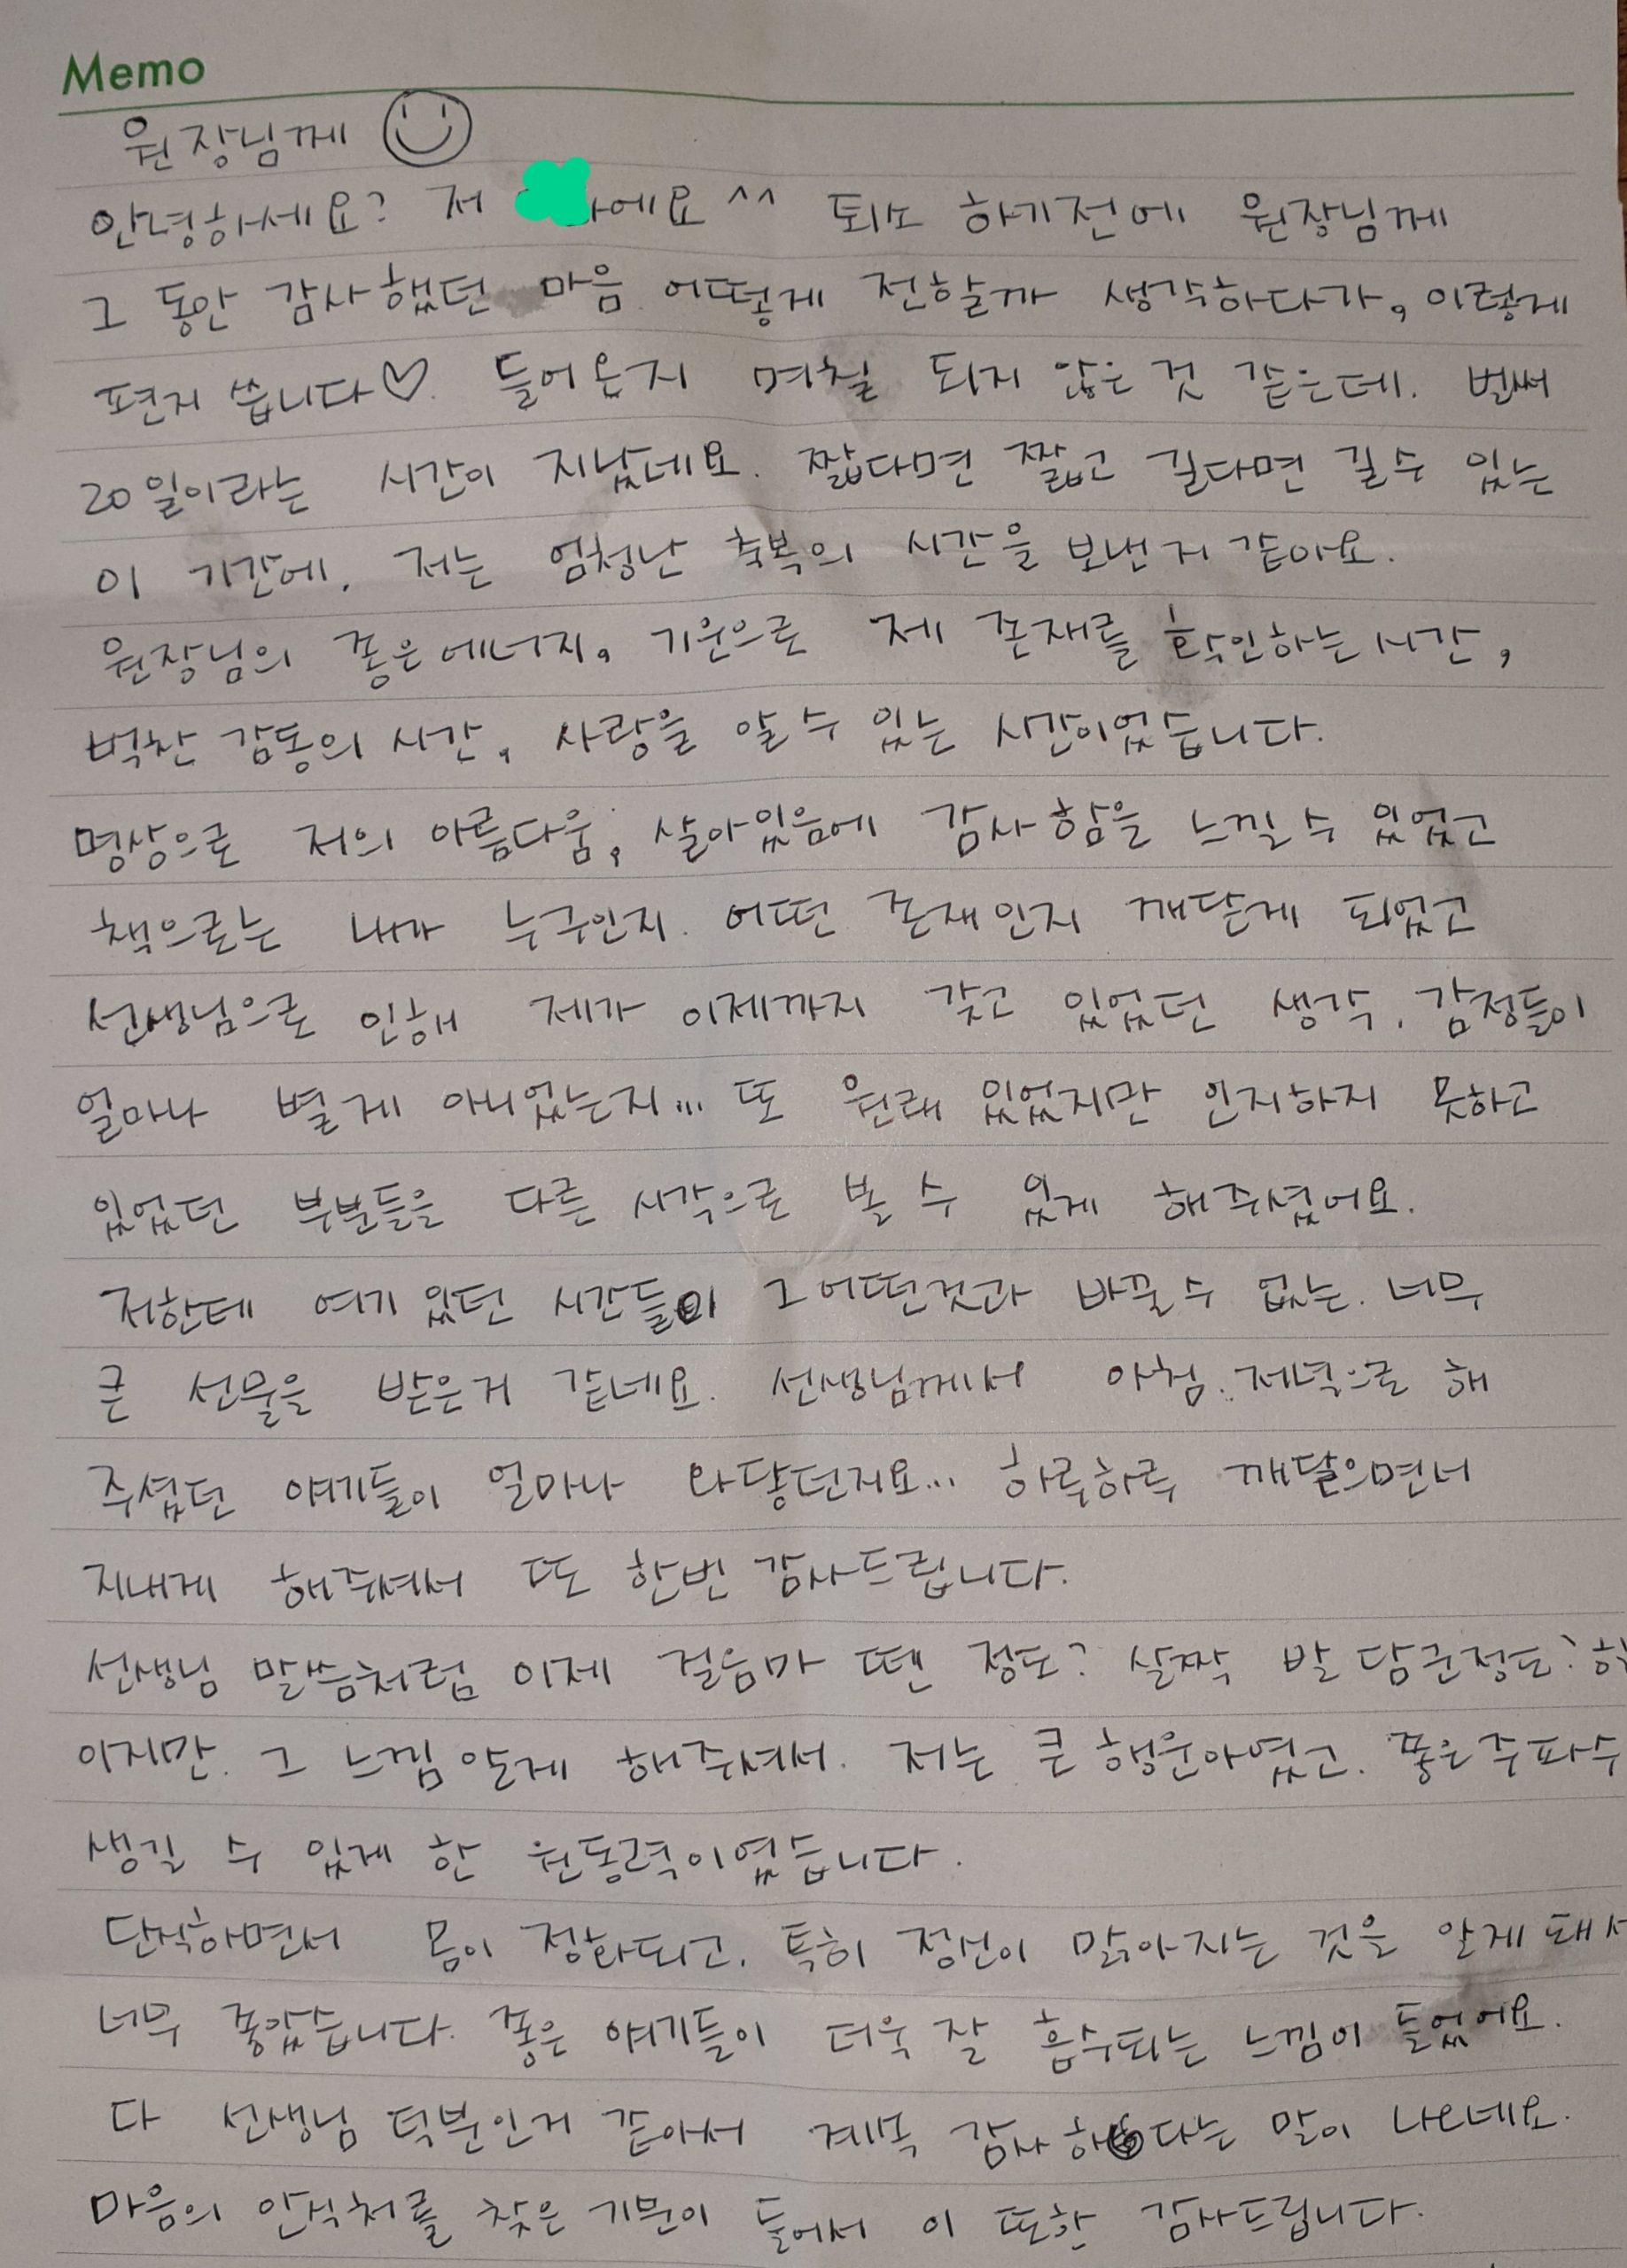 Memo
원장님께
안녕하세요? 저 에요 ^^ 퇴소 하기전에 원장님께
그 동안 감사했던 마음 어떻게 전할까 생각하다가, 이렇게
편지 씁니다♡. 들어온지 며칠 되지 않은 것 같은데. 벌써
20일이라는 시간이 지났네요. 짧다면 짧고 길다면 길수 있는
이 기간에, 저는 엄청난 축복의 시간을 보낸거 같아요.
원장님의 좋은에너지, 기운으로 제 존재를 확인하는시간,
벅찬 감동의 시간, 사랑을 알수 있는 시간이었습니다.
명상으로 저의 아름다움, 살아있음에 감사함을 느낄수 있었고
책으로는 내가 누구인지. 어떤 존재인지 깨닫게 되었고
선생님으로 인해 제가 이제까지 갖고 있었던 생각, 감정들이
얼마나 별게 아니었는지... 또 원래 있었지만 인지하지 못하고
있었던 부분들을 다른 시각으로 볼 수 있게 해주셨어요.
저한테 여기 있던 시간들이 그어떤것과 바꿀수 없는. 너무
큰 선물을 받은거 같네요. 선생님께서 아침. 저녁으로 해
주셨던 얘기들이 얼마나 와닿던지요... 하루하루 깨달으면서
지내게 해주셔서 또 한번 감사드립니다.
선생님 말씀처럼 이제 걸음마 뗀 정도? 살짝 발 담근정도?
이지만. 그 느낌 알게 해주셔서. 저는 큰 행운아였고. 좋은주파수
생길 수 있게 한 원동력이였습니다.
단식하면서 몸이 정화되고. 특히 정신이 맑아지는 것을 알게돼서
너무 좋았습니다. 좋은 얘기들이 더욱 잘 흡수되는 느낌이 들었어요.
다 선생님 덕분인거 같아서 계속 감사하다는 말이 나오네요.
마음의 안식처를 찾은 기분이 들어서 이 또한 감사드립니다.